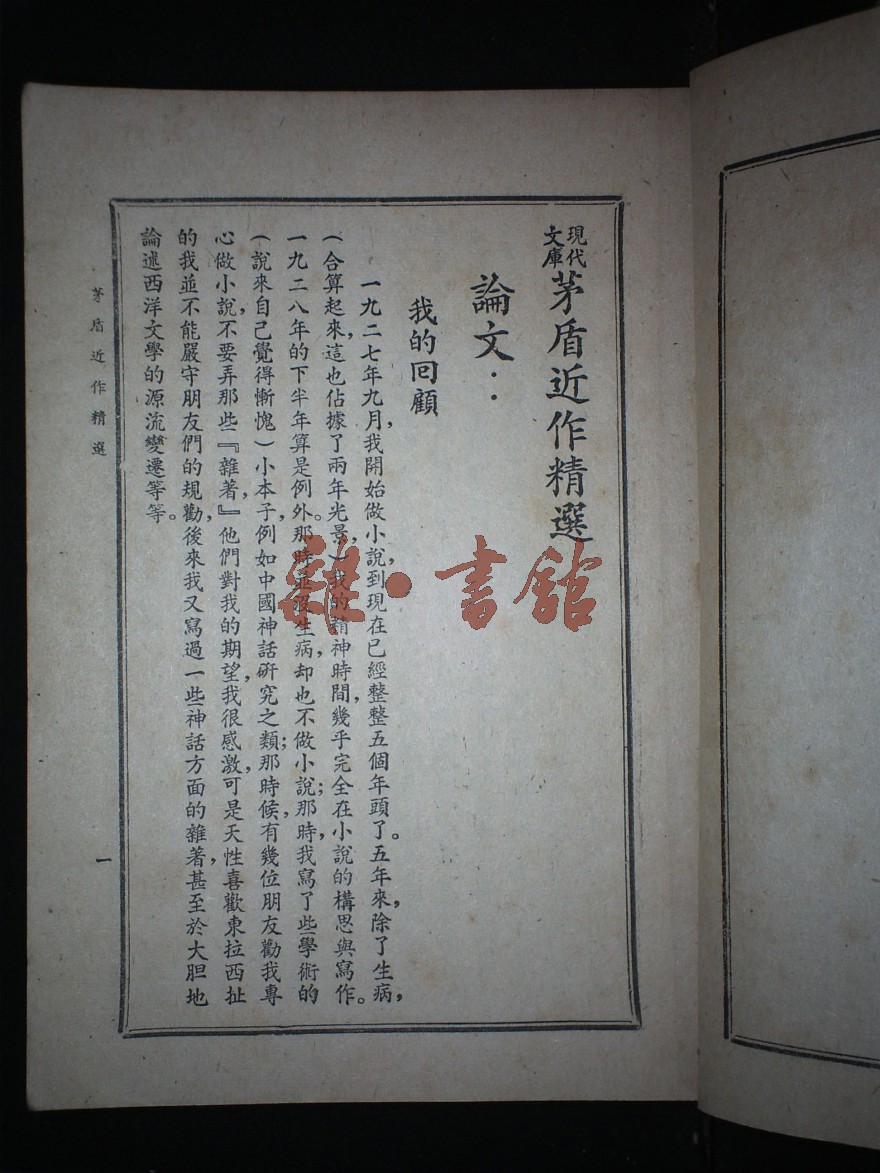 現代
文庫
茅盾近作精選
論文：
我的回顧
一九二七年九月，我開始做小說，到現在已經整整五個年頭了。五年來，除了生病，
（合算起來，這也佔據了兩年光景，）我的精神時間，幾乎完全在小說的構思與寫作。
一九二八年的下半年算是例外。那時並沒生病，却也不做小說；那時，我寫了些學術的
（說來自己覺得慚愧）小本子，例如中國神話研究之類；那時候，有幾位朋友勸我專
心做小說，不要弄那些『雜著，』他們對我的期望，我很感激，可是天性喜歡東拉西扯
的我並不能嚴守朋友們的規勸，後來我又寫過一些神話方面的雜著，甚至於大胆地
論述西洋文學的源流變遷等等。
茅盾近作精選
一
雜·書舘